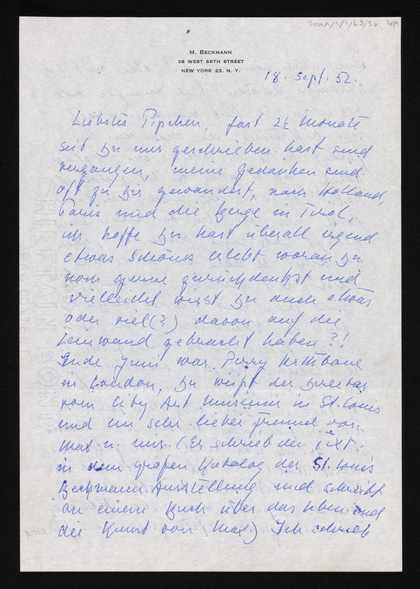 M. BECKMANN
38 WEST 69TH STREET
NEW YORK 23, N. Y.
18. Sept. 52.
Liebstes Pipchen, fast 2½ Monate
seit Du mir geschrieben hast sind
vergangen, meine Gedanken sind
oft zu Dir gewandert, nach Holland
Paris und die Berge in Tirol,
ich hoffe Du hast überall irgend
etwas Schönes erlebt woran Du
gerne zurückdenkst und
vielleicht wirst Du auch etwas
oder viel (?) davon auf die
Leinwand gebracht haben ?!
Ende Juni war Perry Rathbone
in London, Du weißt der Director
vom City Art Museum in St. Louis
und ein sehr lieber Freund von
Max u. mir. (Er schrieb den Text
in dem großen Katalog der St. Louis
Beckmann Ausstellung und schreibt
an einem Buch über das Leben und
die Kunst von Max) Ich schrieb